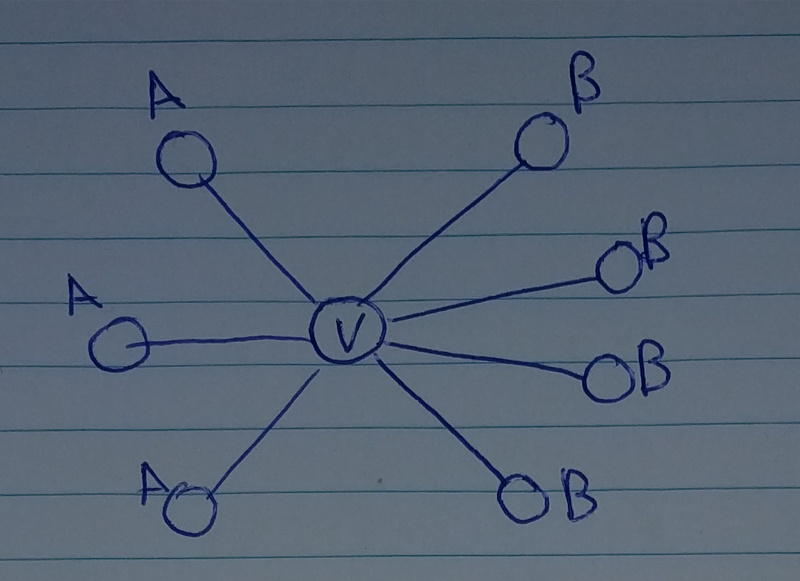 A
B
B
A
V
B
A
B